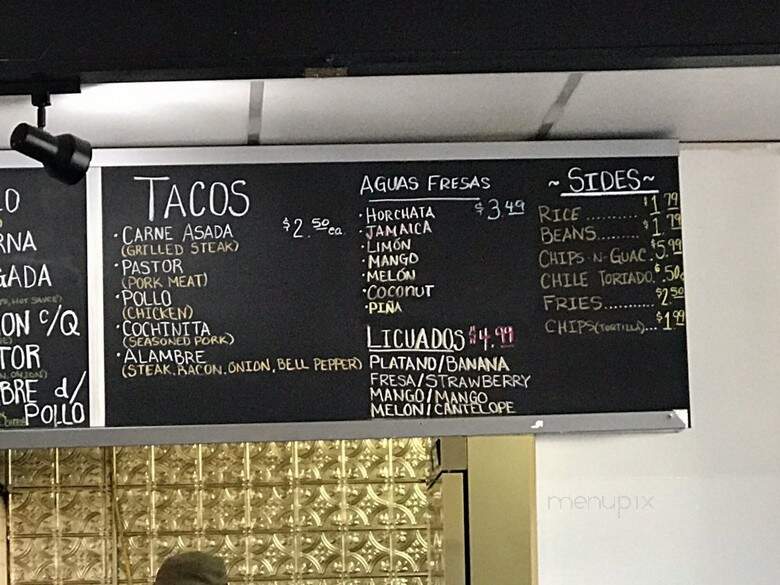 LO
RNA
GADA
HOT SAUCE)
ON C/Q
TOR
BRE d/
POLLO
TACOS
$2.50 ea.
· CARNE ASADA
(GRILLED STEAK)
· PASTOR
(PORK MEAT)
· POLLO
(CHICKEN)
· COCHINITA
(SEASONED PORK)
· ALAMBRE
(STEAK, BACON, ONION, BELL PEPPER)
AGUAS FRESAS
$3.49
· HORCHATA
· JAMAICA
· LIMÓN
· MANGO
· MELÓN
· COCONUT
· PIÑA
LICUADOS $4.99
PLATANO/BANANA
FRESA/STRAWBERRY
MANGO/MANGO
MELON/CANTELOPE
~ SIDES ~
RICE .......... $1.79
BEANS........ $1.79
CHIPS-N-GUAC. $5.99
CHILE TORIADO. $.50
FRIES........... $2.50
CHIPS (TORTILLA)... $1.99
menupix